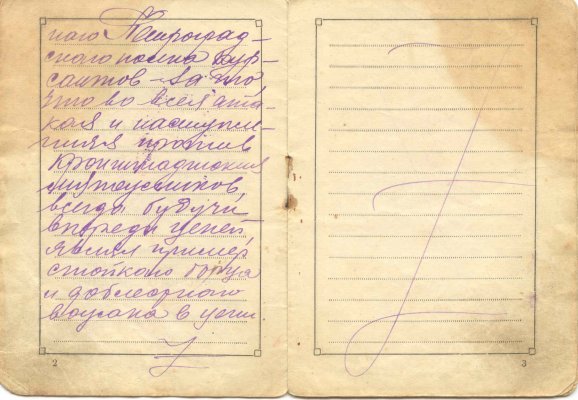 наго Петроград-
ского полка кур-
сантов - за то,
что во всех ата-
ках и наступле-
ниях против
Кронштадтских
мятежников,
всегда будучи
впереди цепей
являл пример
стойкого борца
и доблестного
в цепи.
2
3